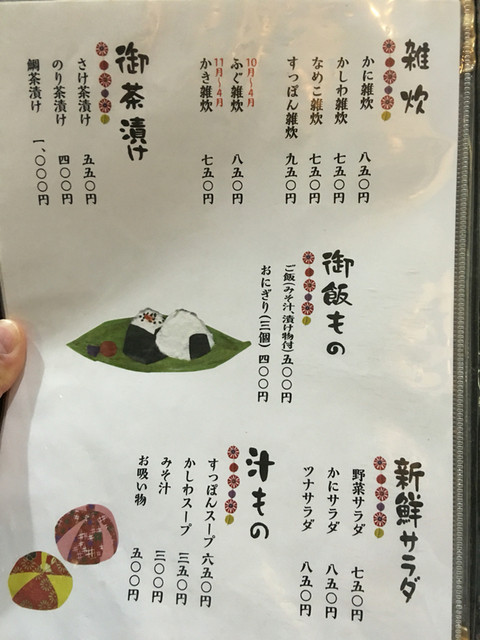 雑炊
かに雑炊 八五〇円
かしわ雑炊 七五〇円
なめこ雑炊 七五〇円
すっぽん雑炊 九五〇円
10月〜4月
ふぐ雑炊 八五〇円
11月〜4月
かき雑炊 七五〇円
御茶漬け
さけ茶漬け 五五〇円
のり茶漬け 四〇〇円
鯛茶漬け 一、〇〇〇円
御飯もの
ご飯(みそ汁、漬け物付)五〇〇円
おにぎり(三個) 四〇〇円
新鮮サラダ
野菜サラダ 七五〇円
かにサラダ 八五〇円
ツナサラダ 八五〇円
汁もの
すっぽんスープ 六五〇円
かしわスープ 三五〇円
みそ汁 三〇〇円
お吸い物 五〇〇円